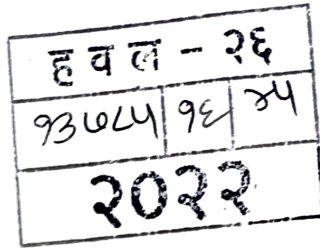 हवल - २६
१३७८५ १६ ३५
२०२२